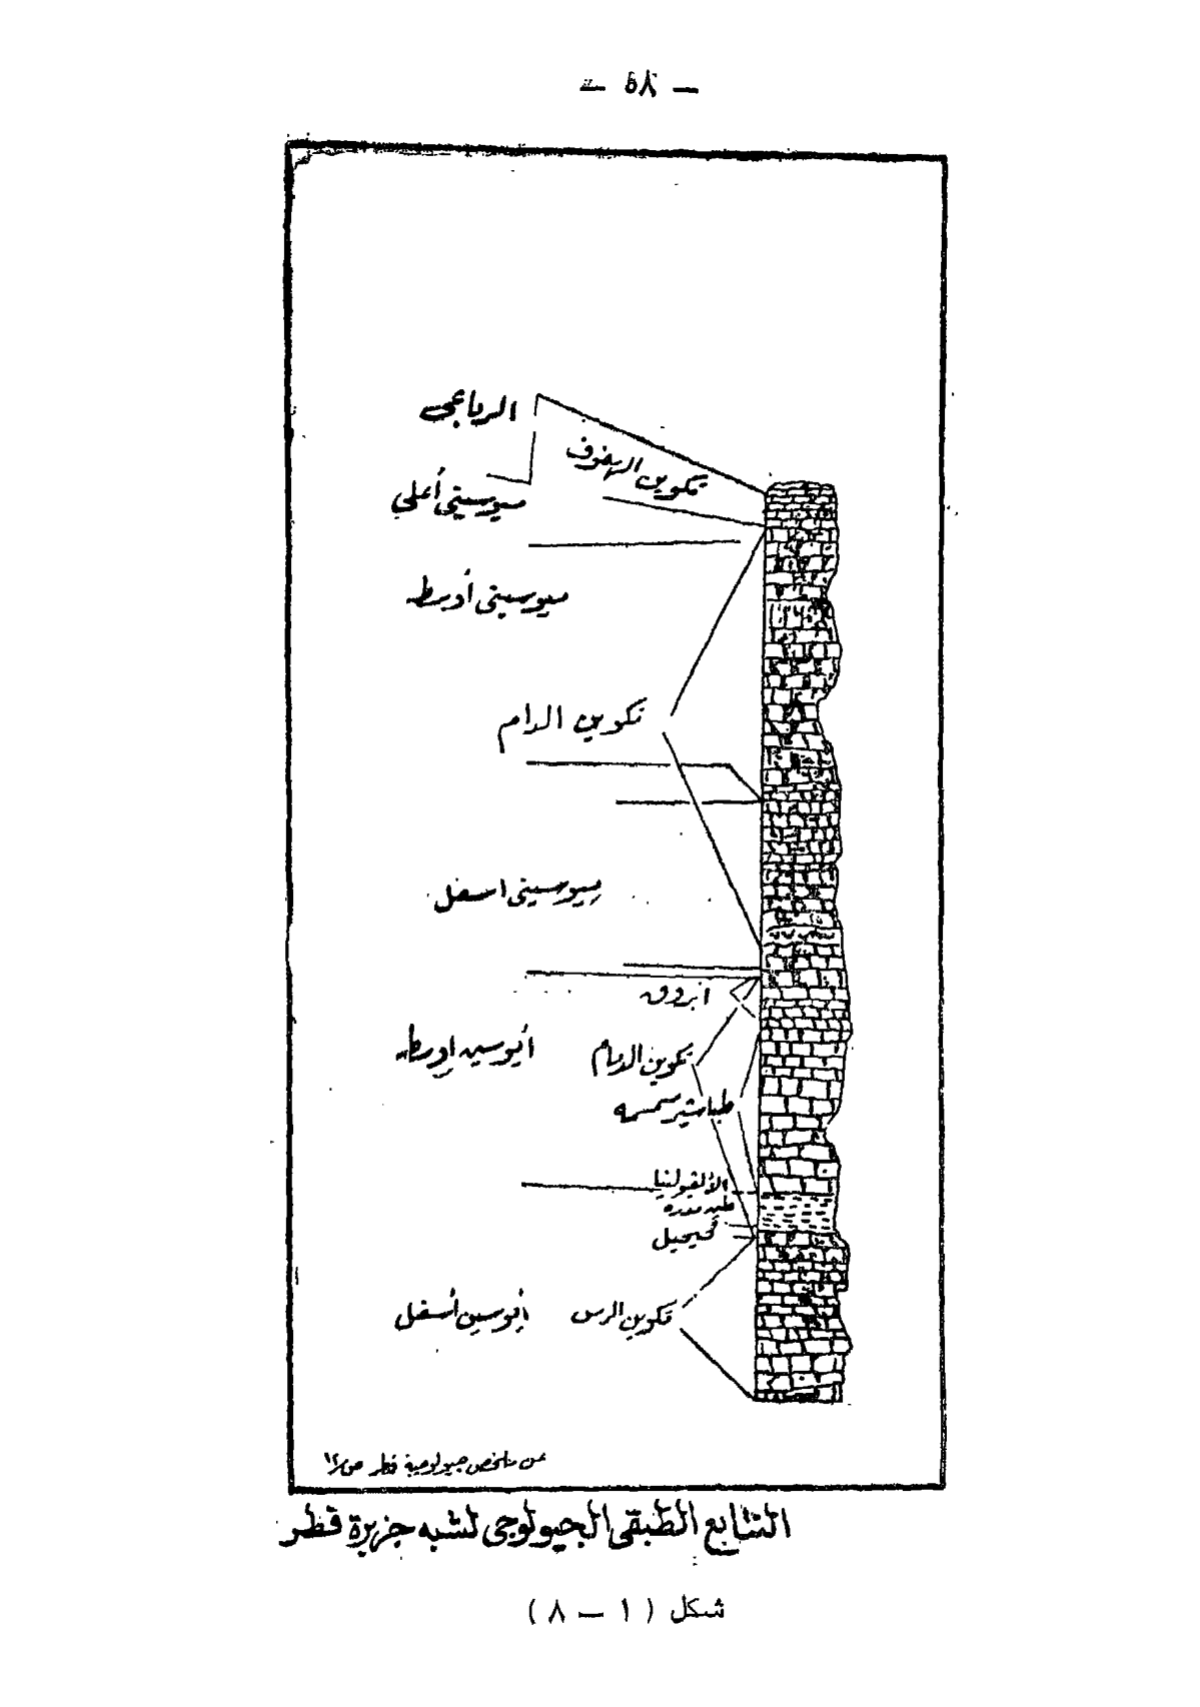 — ٥٨ —
الرباعي
تكوين الهفوف
ميوسيني أعلي
ميوسيني أوسط
تكوين الدام
ميوسيني اسفل
ابروق
أيوسين اوسط
تكوين الدمام
طباشير سمسمه
الألفيولينا
طين مدره
فحيحيل
أيوسين أسفل
تكوين الرس
عن ملخص جيولوجية قطر ص١٢
التتابع الطبقى الجيولوجى لشبه جزيرة قطر
شكل ( ١ — ٨ )